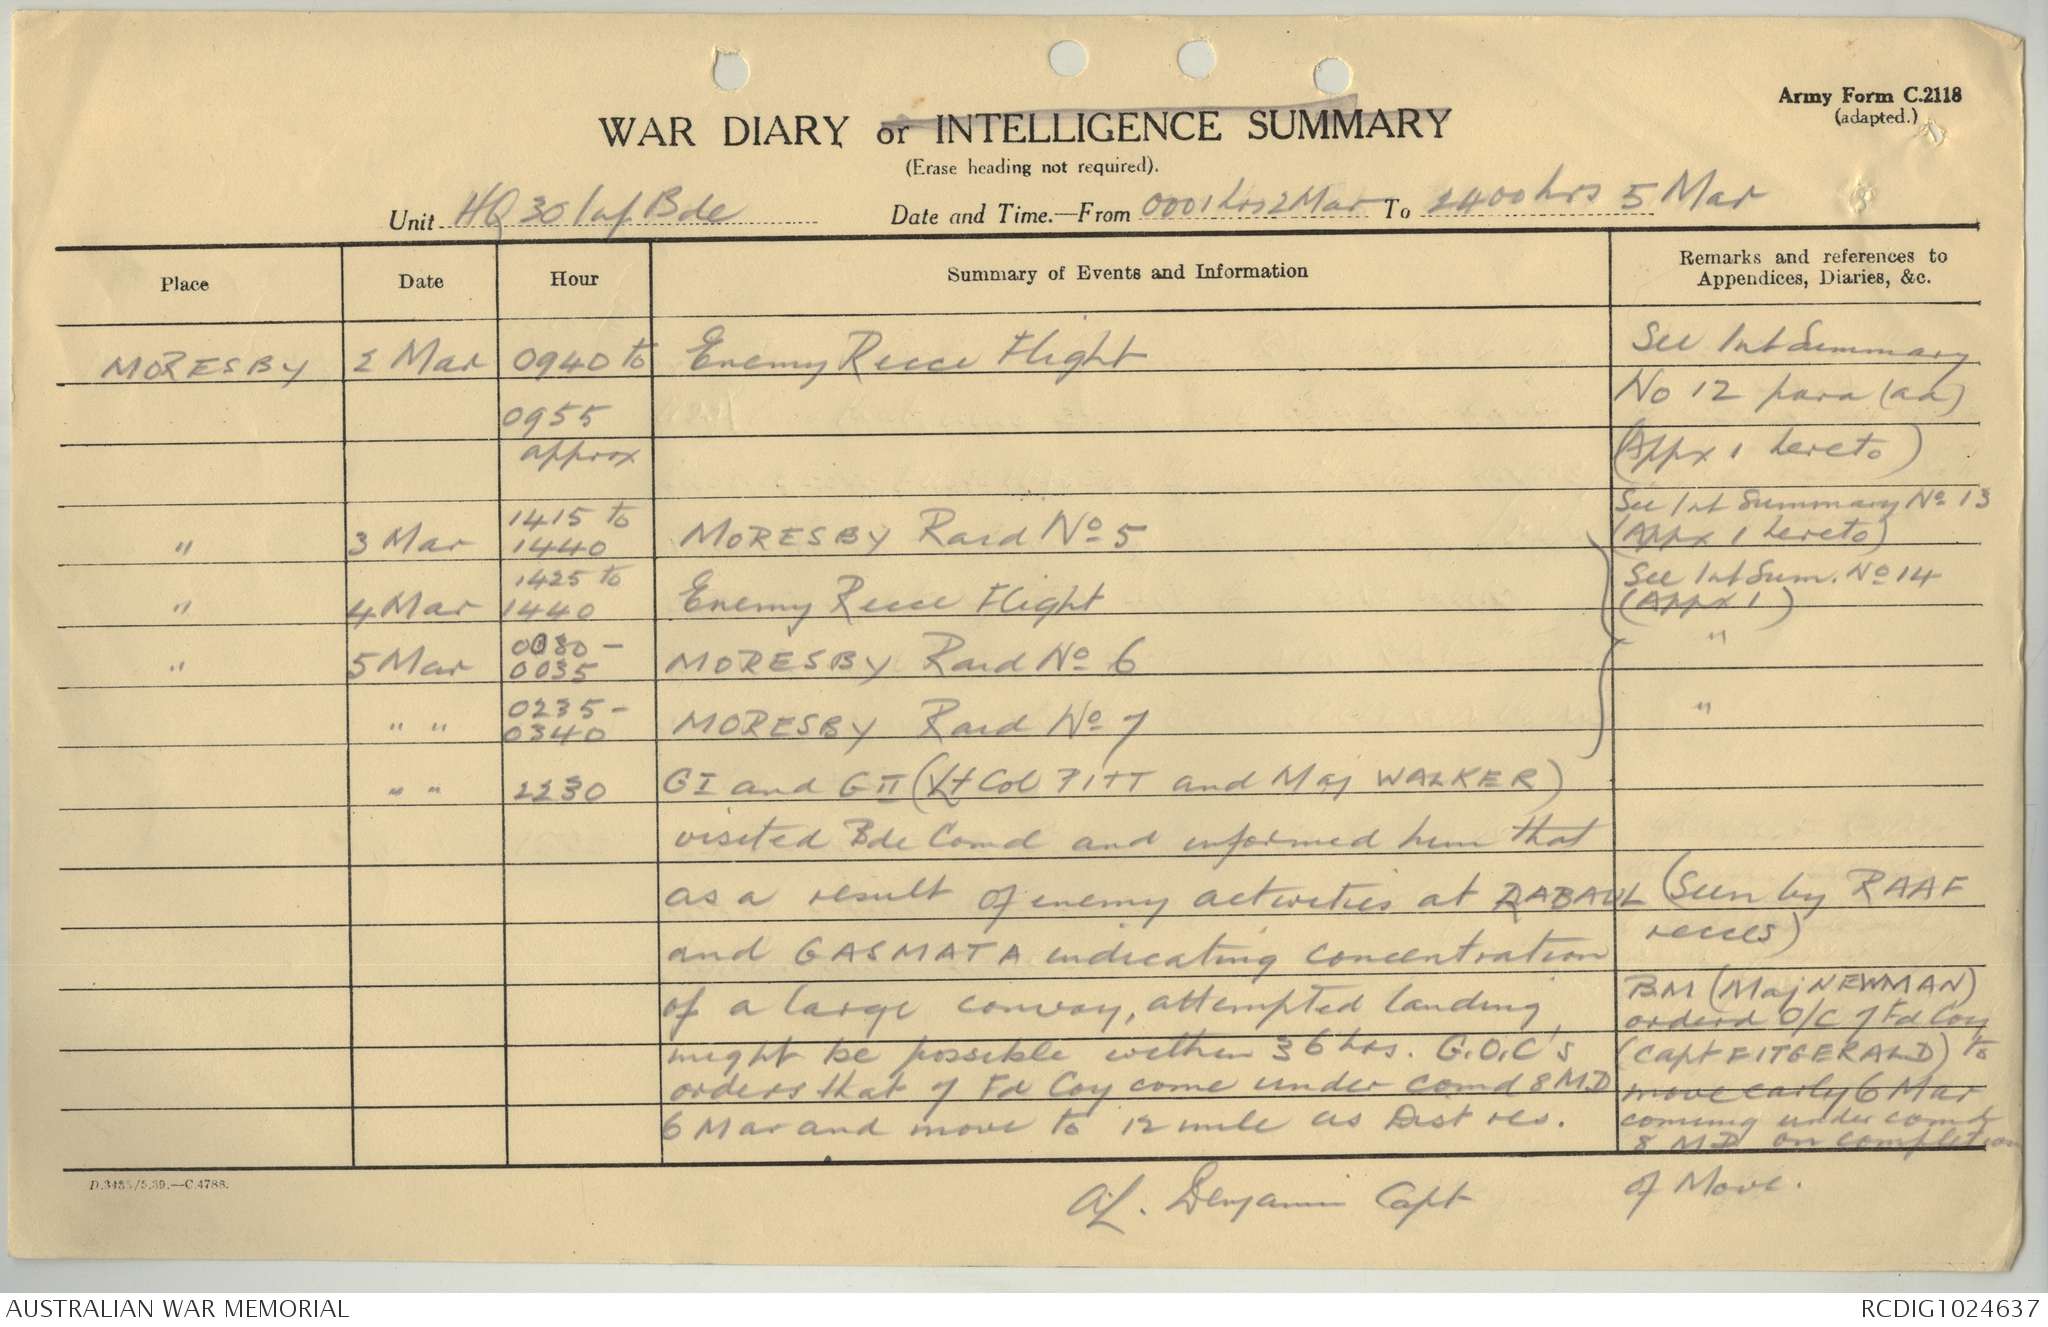 Army Form C.2118
(adapted.)
WAR DIARY or INTELLIGENCE SUMMARY
(Erase heading not required).
Unit HQ 30 Inf Bde Date and Time.—From 0001 hrs 2 Mar To 2400 hrs 5 Mar
Place Date Hour Summary of Events and Information Remarks and references to
Appendices, Diaries, &c.
MORESBY 2 Mar 0940 to Enemy Recce Flight See Int Summary
0955 No 12 para (aa)
approx (Appx 1 hereto)
1415 to See Int Summary No 13
" 3 Mar 1440 MORESBY Raid No 5 (Appx 1 hereto)
1425 to See Int Sum. No 14
" 4 Mar 1440 Enemy Recce Flight (Appx 1)
0030 - "
" 5 Mar 0035 MORESBY Raid No 6
0235 - "
" " 0340 MORESBY Raid No 7
" " 2230 GI and GII (Lt Col PITT and Maj WALKER)
visited Bde Comd and informed him that
as a result of enemy activities at RABAUL (Seen by RAAF
and GASMATA indicating concentration recces)
of a large convoy, attempted landing BM (Maj NEWMAN)
orderd O/C 7 Fd Coy
might be possible within 36 hrs. G.O.C's (Capt FITGERALD) to
orders that 7 Fd Coy come under comd 8 M.D move early 6 Mar
6 Mar and move to 12 mile as Dist res. coming under comd
8 M.D on completion
of Move.
A.L. Benjamin Capt
D.3435/5.39.—C.4788.
AUSTRALIAN WAR MEMORIAL RCDIG1024637